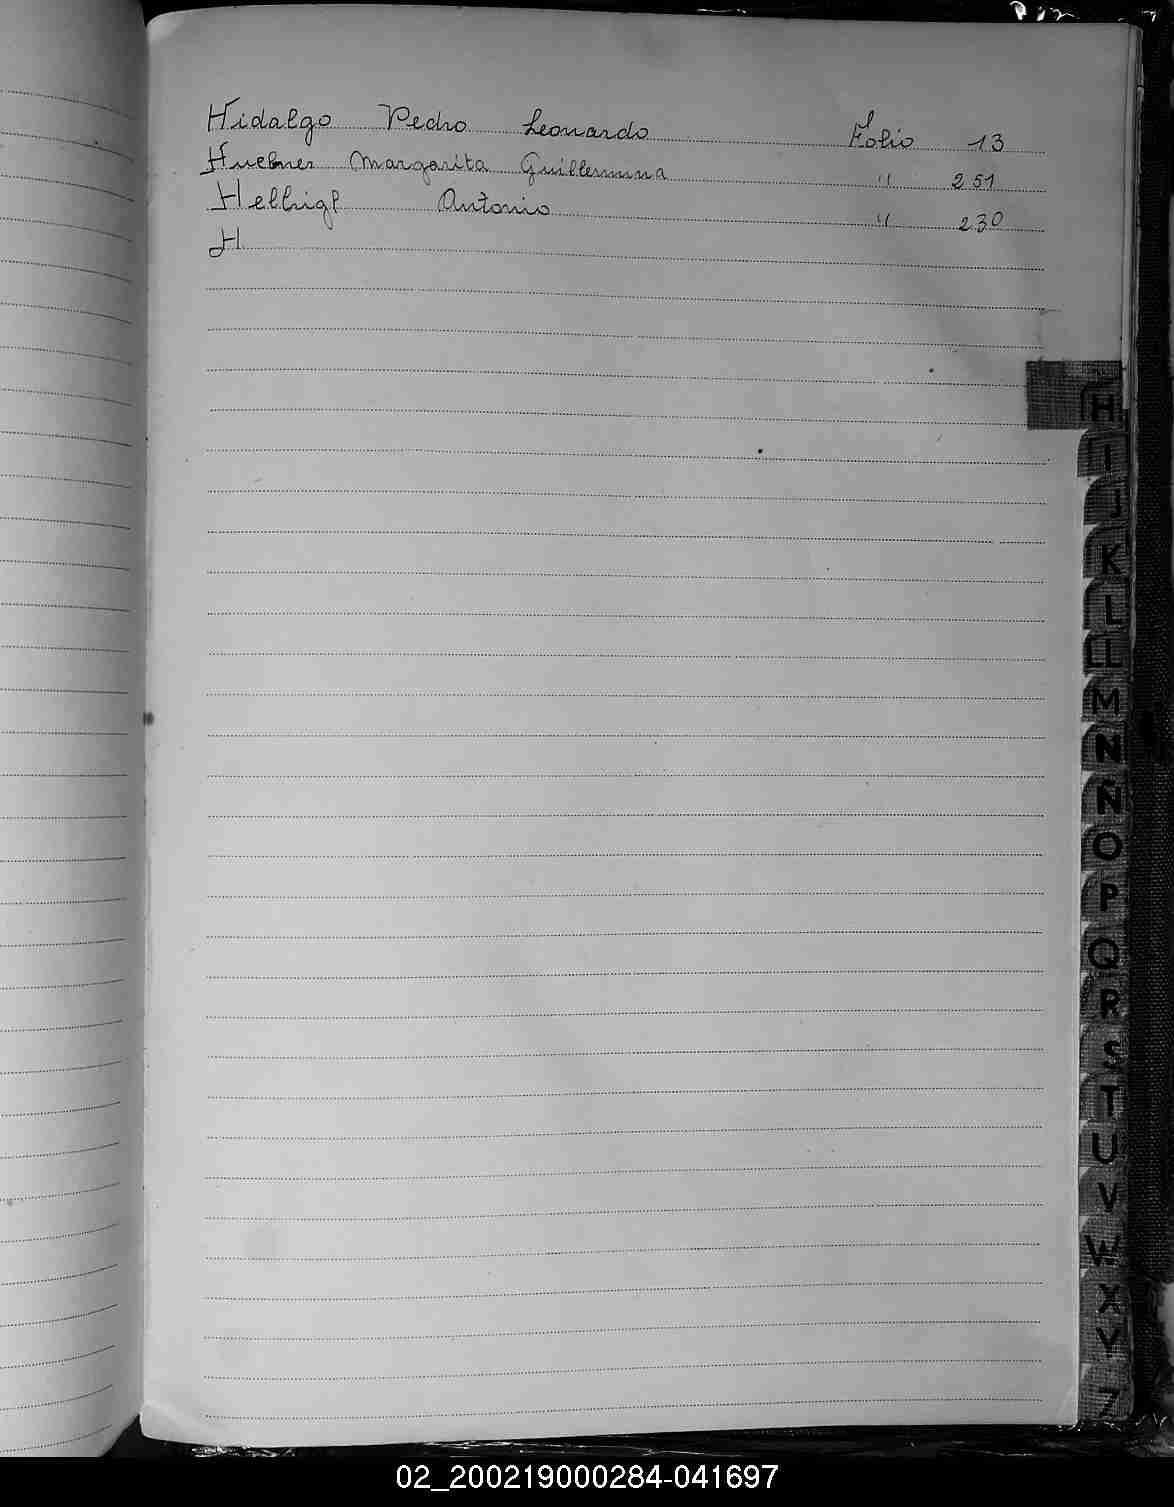 Hidalgo Pedro Leonardo Folio 13
Huebner Margarita Guillermina " 251
Helbigl Antonio " 230
H
H
I
J
K
L
LL
M
N
Ñ
O
P
Q
R
S
T
U
V
W
X
Y
Z
02_200219000284-041697